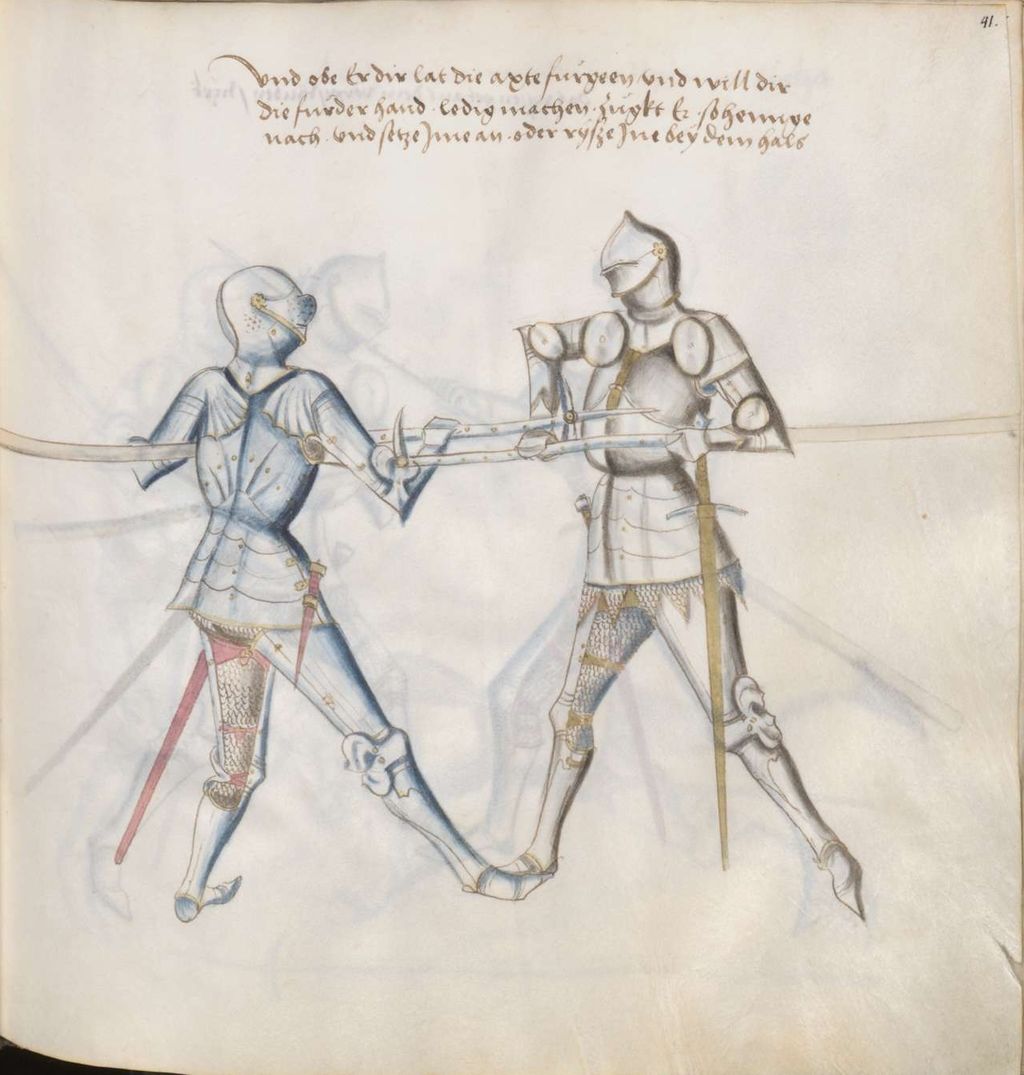 41.
Vnd obe Er dir lat die axte furgeen vnd will dir
die furder hand ledig machen zugkt Er so hennge
nach vnd setze Jme an oder rysse Jne bey dem hals